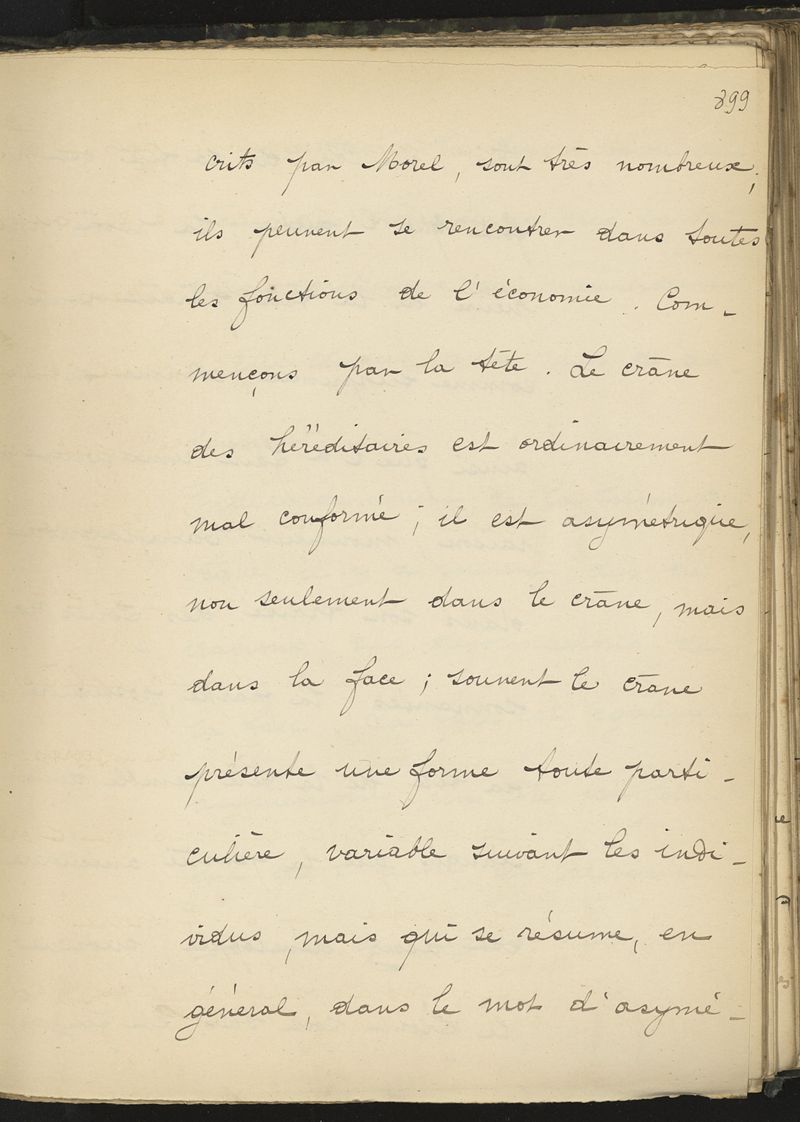 899
crits par Morel, sont très nombreux ;
ils peuvent se rencontrer dans toutes
les fonctions de l'économie. Com-
mençons par la tête. Le crâne
des héréditaires est ordinairement
mal conformé ; il est asymétrique,
non seulement dans le crâne, mais
dans la face ; souvent le crâne
présente une forme toute parti-
culière, variable suivant les indi-
vidus, mais qui se résume, en
général, dans le mot d'asymé-